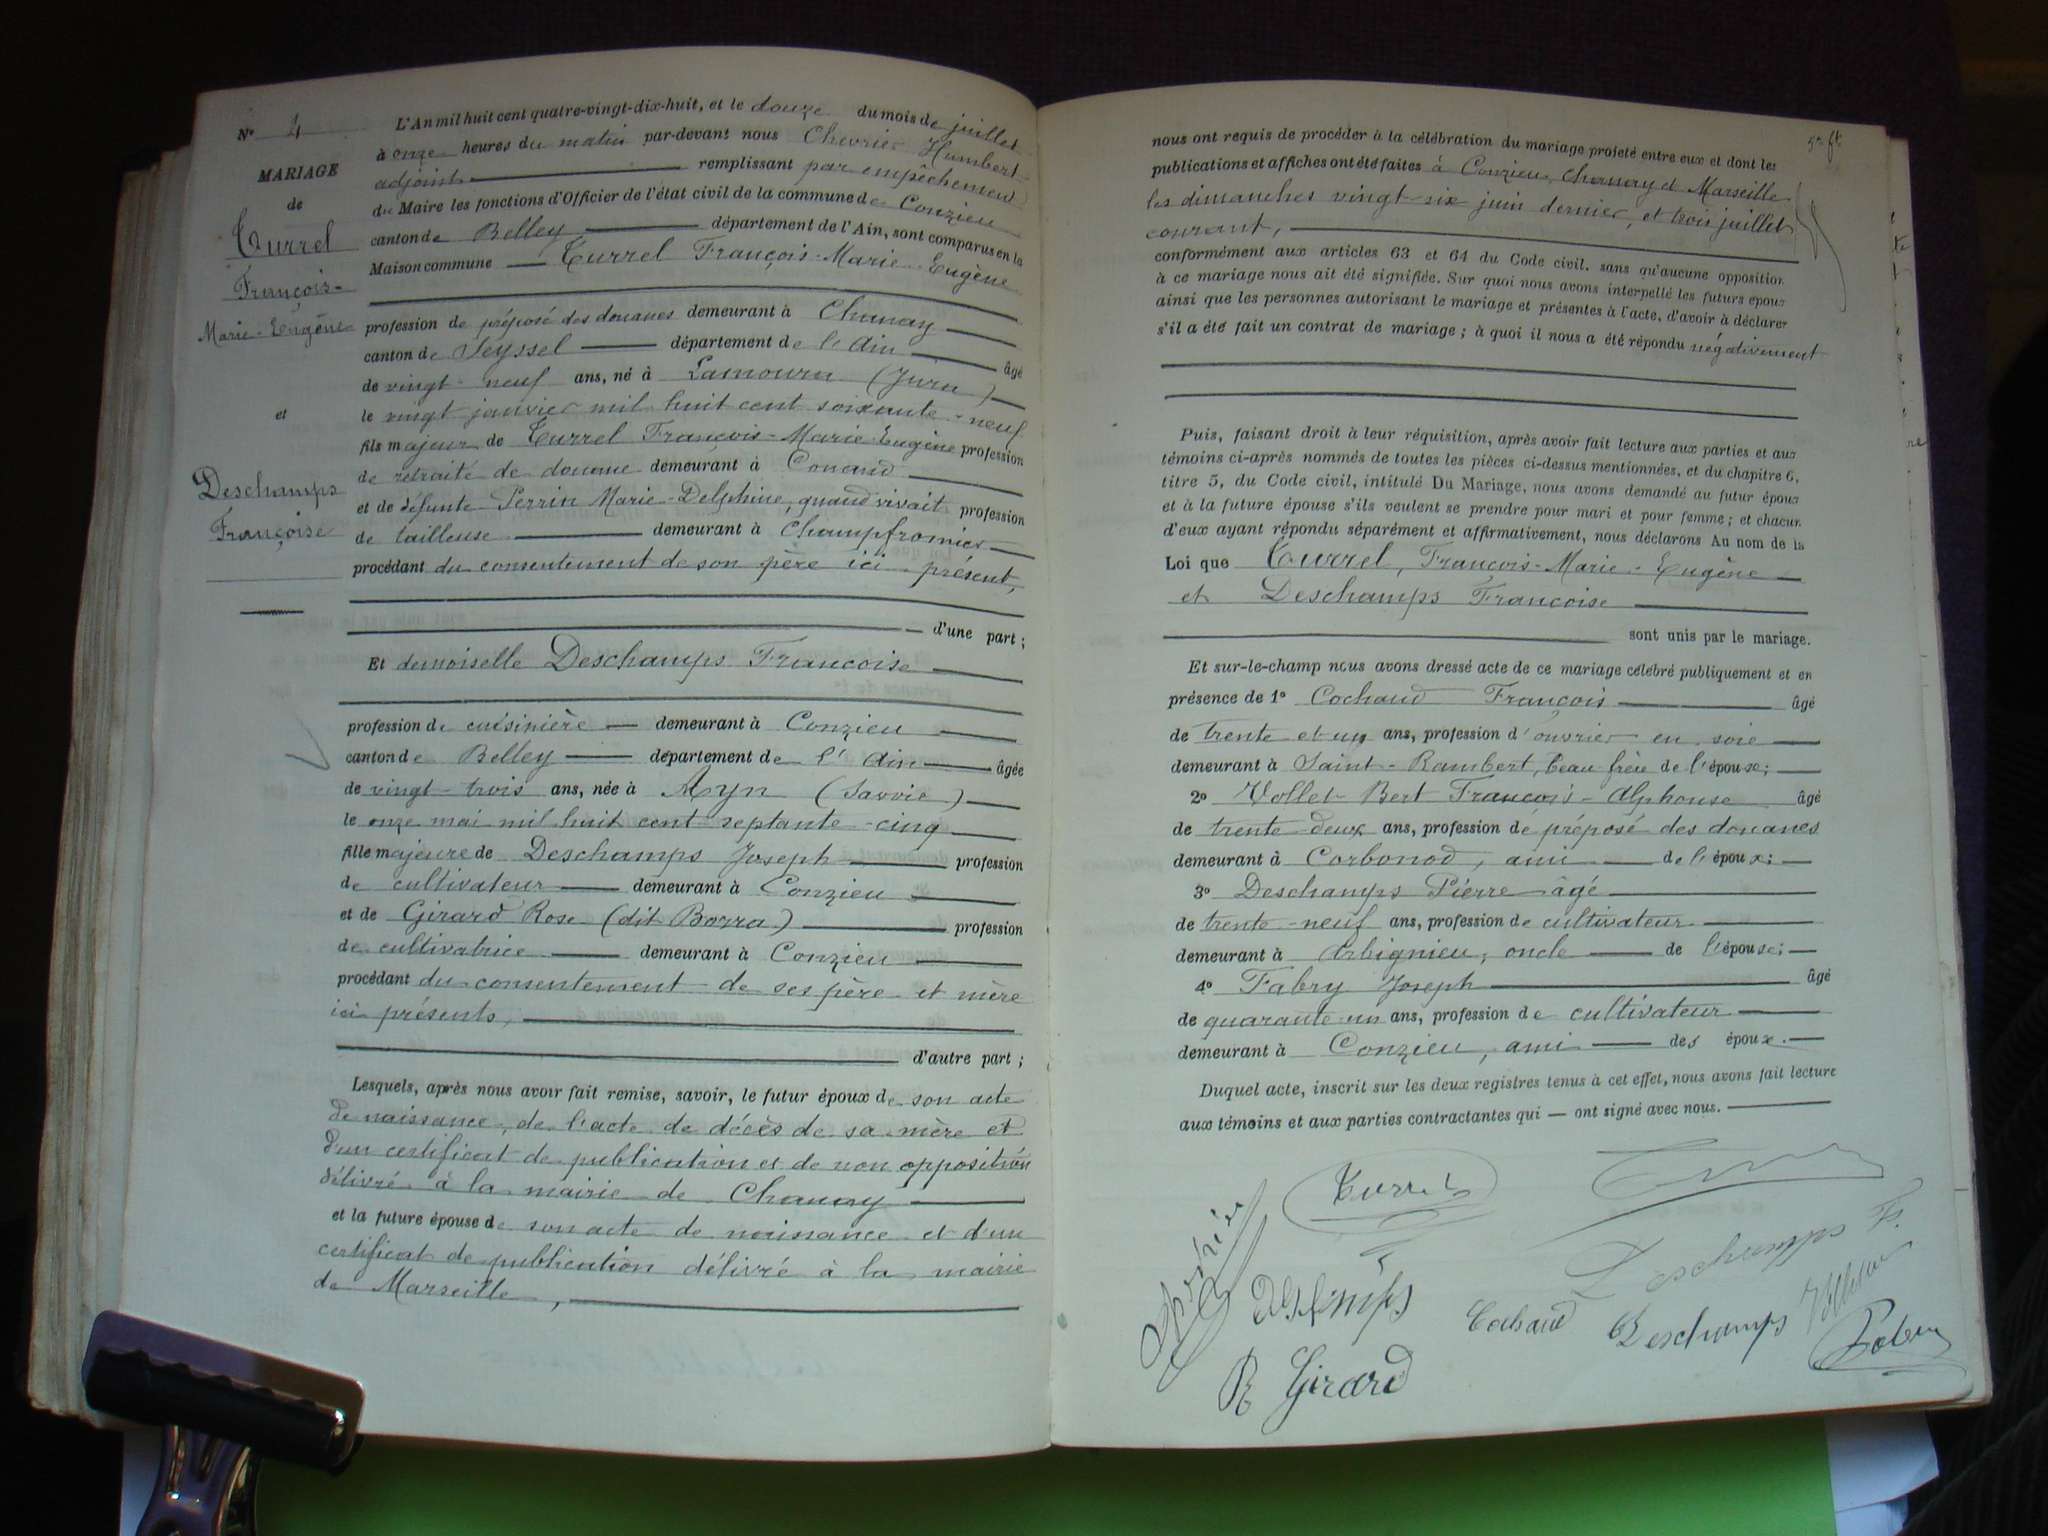 N° 4
MARIAGE
de
Turrel
François-
Marie-Eugène
et
Deschamps
Françoise
L'An mil huit cent quatre-vingt-dix-huit, et le douze du mois de juillet
à onze heures du matin par-devant nous Chevrier Humbert
adjoint remplissant par empêchement
du Maire les fonctions d'Officier de l'état civil de la commune de Conzieu
canton de Belley département de l'Ain, sont comparus en la
Maison commune Turrel François-Marie-Eugène
profession de préposé des douanes demeurant à Chanay
canton de Seyssel département de l'Ain âgé
de vingt-neuf ans, né à Lamoura (Jura)
le vingt janvier mil huit cent soixante-neuf
fils majeur de Turrel François-Marie Eugène profession
de retraité de douane demeurant à Conand
et de défunte Perrin Marie-Delphine, quand vivait profession
de tailleuse demeurant à Champfromier
procédant du consentement de son père ici présent,
d'une part ;
Et demoiselle Deschamps Francoise
profession de cuisinière demeurant à Conzieu
canton de Belley département de l'Ain âgée
de vingt-trois ans, née à Ayn (Savoie)
le onze mai mil huit cent septante-cinq
fille majeure de Deschamps Joseph profession
de cultivateur demeurant à Conzieu
et de Girard Rose (dit Borra) profession
de cultivatrice demeurant à Conzieu
procédant du consentement de ses père et mère
ici présents,
d'autre part ;
Lesquels, après nous avoir fait remise, savoir, le futur époux de son acte
de naissance, de l'acte de décès de sa mère et
d'un certificat de publication et de non opposition
délivré à la mairie de Chanay
et la future épouse de son acte de naissance et d'un
certificat de publication délivré à la mairie
de Marseille,
nous ont requis de procéder à la célébration du mariage projeté entre eux et dont les
publications et affiches ont été faites à Conzieu, Chanay et Marseille
les dimanches vingt-six juin dernier, et trois juillet
courant,
conformément aux articles 63 et 64 du Code civil, sans qu'aucune opposition
à ce mariage nous ait été signifiée. Sur quoi nous avons interpellé les futurs époux
ainsi que les personnes autorisant le mariage et présentes à l'acte, d'avoir à déclarer
s'il a été fait un contrat de mariage ; à quoi il nous a été répondu négativement
Puis, faisant droit à leur réquisition, après avoir fait lecture aux parties et aux
témoins ci-après nommés de toutes les pièces ci-dessus mentionnées, et du chapitre 6,
titre 5, du Code civil, intitulé Du Mariage, nous avons demandé au futur époux
et à la future épouse s'ils veulent se prendre pour mari et pour femme ; et chacun
d'eux ayant répondu séparément et affirmativement, nous déclarons Au nom de la
Loi que Turrel, François-Marie-Eugène
et Deschamps Francoise
sont unis par le mariage.
Et sur-le-champ nous avons dressé acte de ce mariage célébré publiquement et en
présence de 1° Cochaud François âgé
de trente et un ans, profession d'ouvrier en soie
demeurant à Saint-Rambert, beau frère de l'épouse;
2° Vollet-Bert François-Alphonse âgé
de trente-deux ans, profession de préposé des douanes
demeurant à Corbonod, ami de l'époux;
3° Deschamps Pierre âgé
de trente-neuf ans, profession de cultivateur
demeurant à Arbignieu, oncle de l'épouse;
4° Fabry Joseph âgé
de quarante un ans, profession de cultivateur
demeurant à Conzieu, ami des époux.
Duquel acte, inscrit sur les deux registres tenus à cet effet, nous avons fait lecture
aux témoins et aux parties contractantes qui — ont signé avec nous.
Turrel
Deschamps F.
Deschamps
Cochaud
Deschamps
R Girard